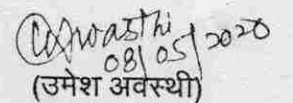 Awasthi
08/05/2020
(उमेश अवस्थी)